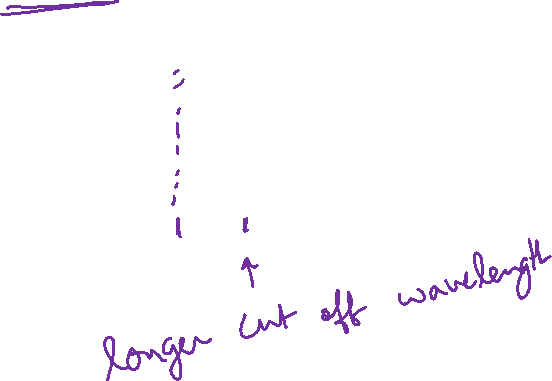 longer cut off wavelength